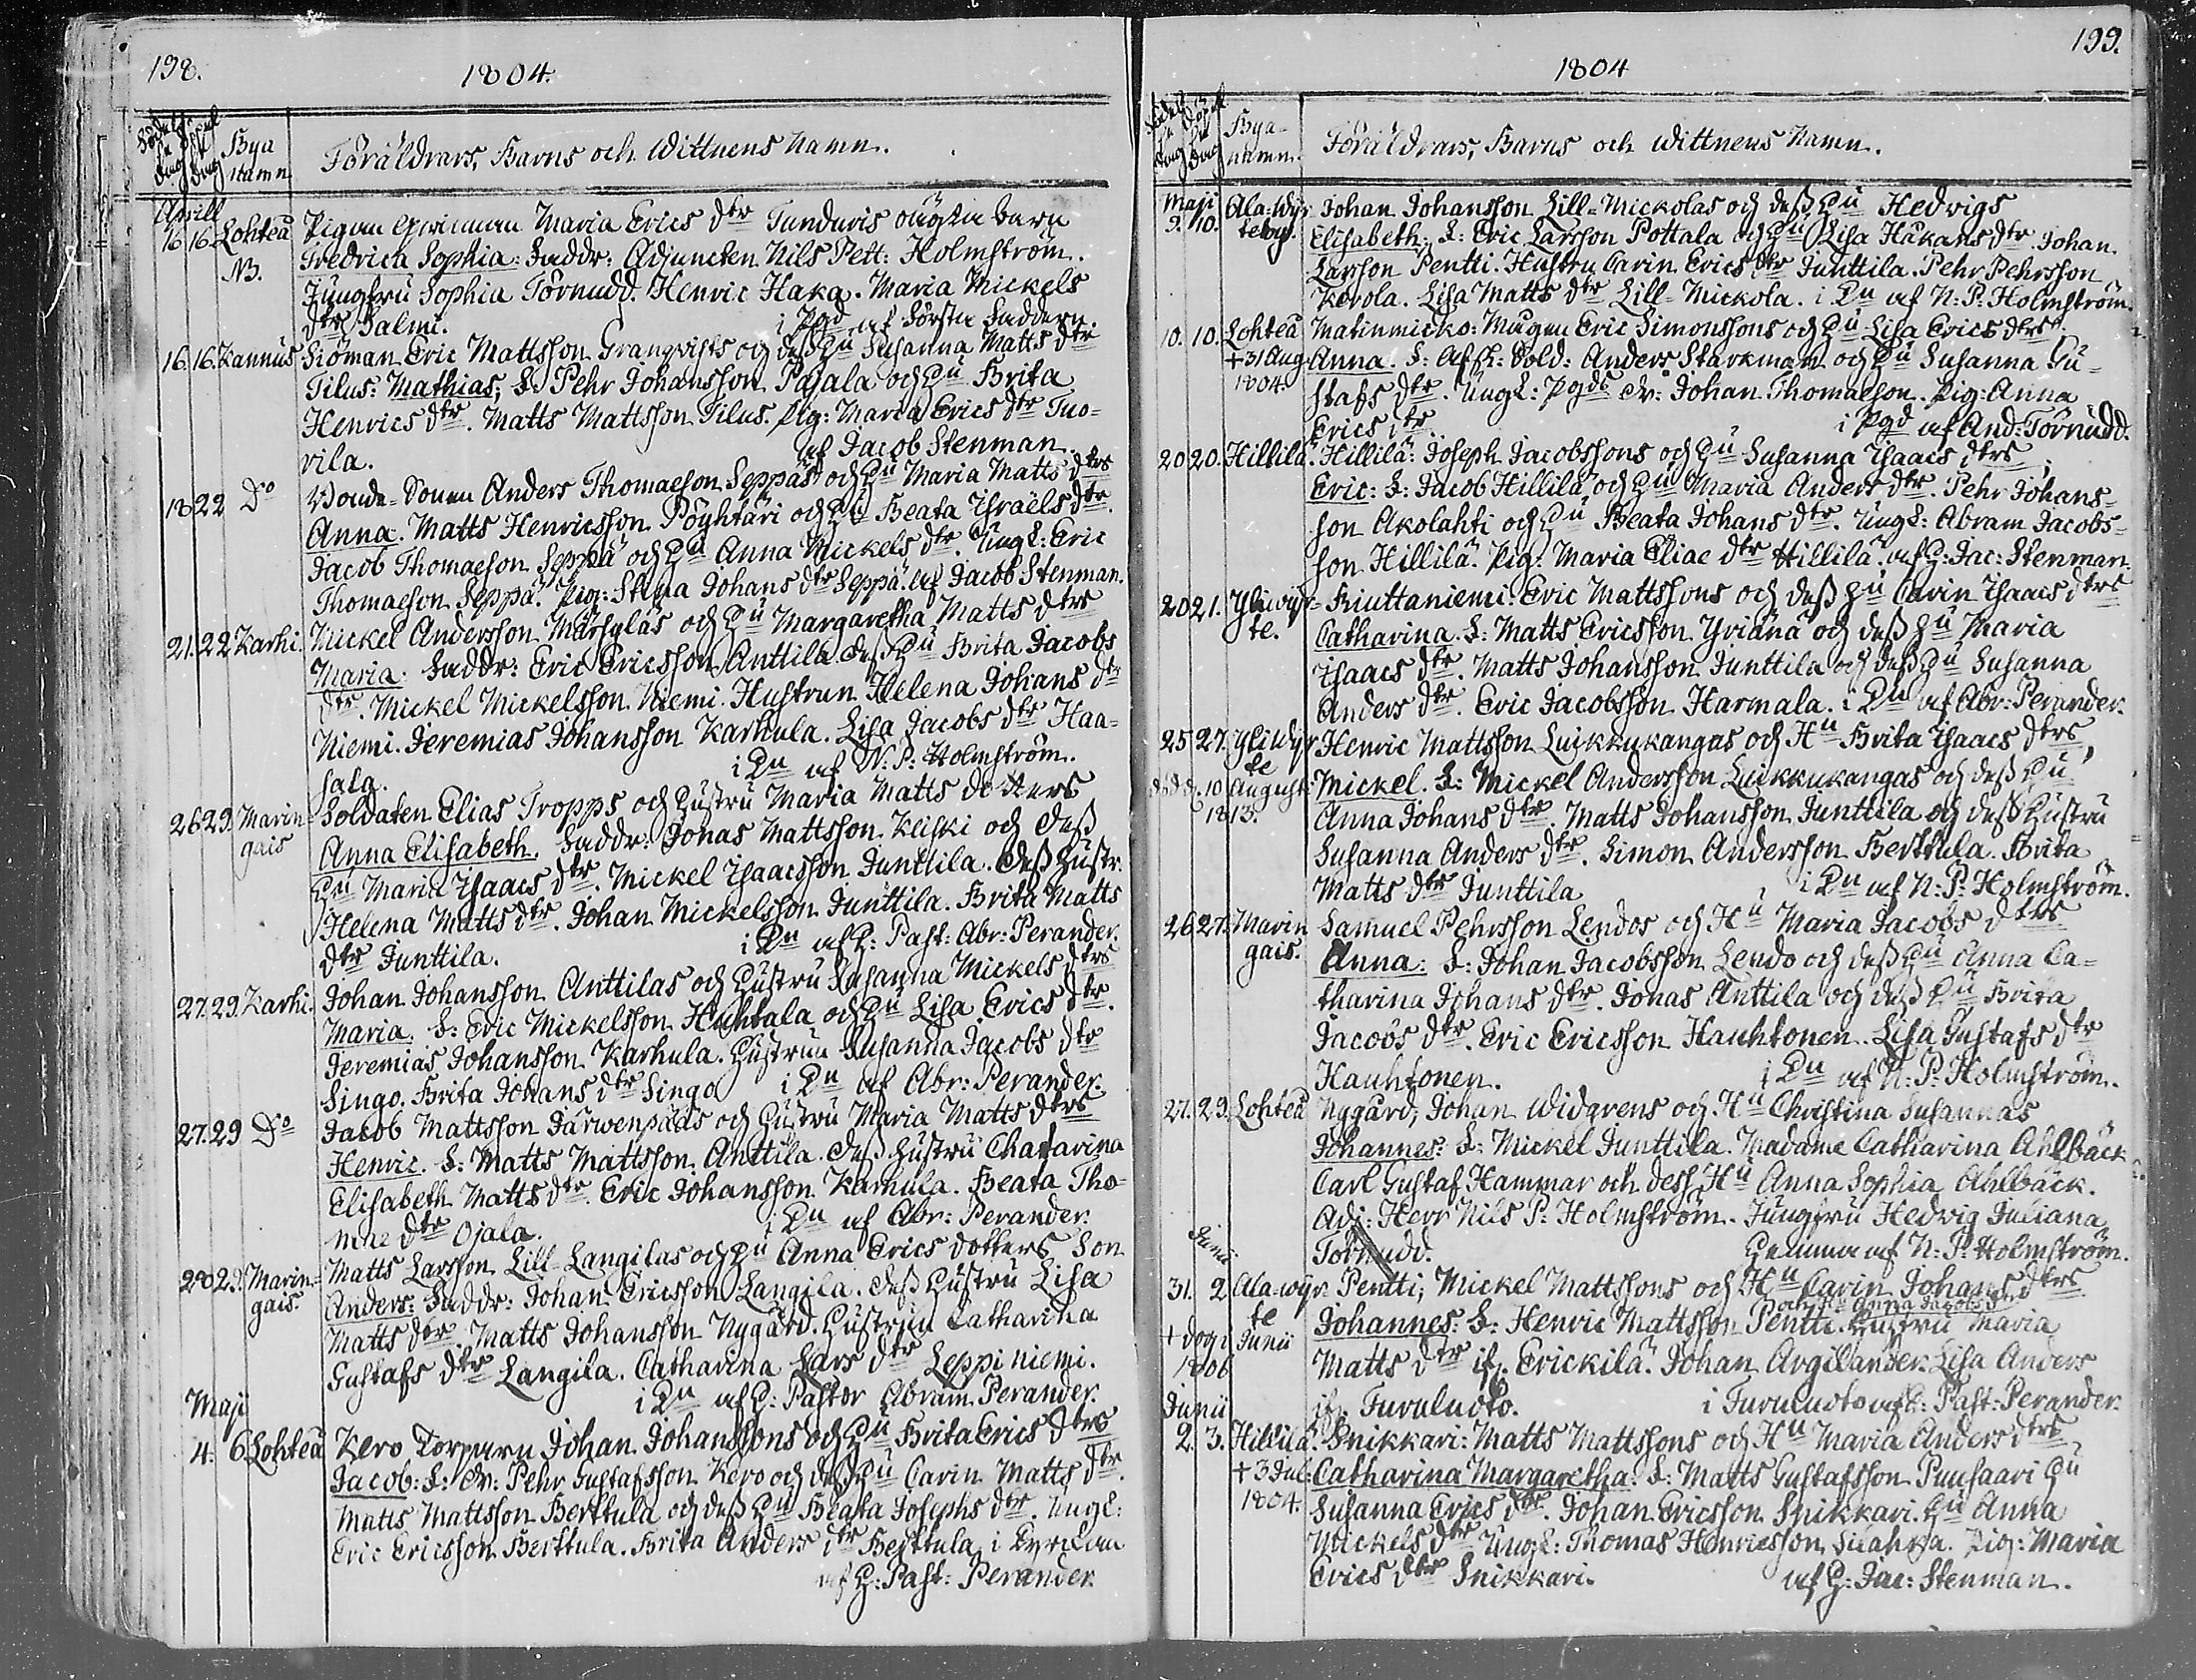 198.
1804.
Födelse Dag Döpelse Dag Bya namn Föräldrars, Barns och Wittnens Namn.
Aprill
16 16. Lohteå Pigan Maria Erics dtr Tunduris oägta barn
NB. Fredrica Sophia: Faddr: Adjuncten Nils Pett: Holmström.
Jungfru Sophia Törnudd. Henric Haka. Maria Mickels
dtr Salmi. i Pgd af första faddern.
16. 16. Kannus Siöman Eric Mattsson Granqvists och deß Hu Susanna Matts dtr
Tilus: Mathias; F: Pehr Johansson Pajala och Hu Brita
Henrics dtr. Matts Mattsson Tilus. Pig: Maria Erics dtr Tuo-
vila. af Jacob Stenman.
18 22 Do Bonde-Sonen Anders Thomaeson Seppäs och Hu Maria Matts dtrs
Anna. Matts Henricsson Pöyhtäri och Hu Beata Israëls dtr.
Jacob Thomaeson Seppä och Hu Anna Mickels dtr. Ungk: Eric
Thomaeson Seppä. Pig: Stina Johans dtr Seppä. af Jacob Stenman.
21. 22 Karhi. Mickel Andersson Märsyläs och Hu Margaretha Matts dtrs
Maria: Faddr: Eric Ericsson Anttila. deß Hu Brita Jacobs
dtr. Mickel Mickelsson Niemi. Hustrun Helena Johans dtr
Niemi. Jeremias Johansson Karhula. Lisa Jacobs dtr Haa-
sala. i Dn af N: P: Holmström.
26 29. Marin= Soldaten Elias Tropps och Hustru Maria Matts dotters
gais Anna Elisabeth. Faddr: Jonas Mattsson Kliski och deß
Hu Maria Isaacs dtr. Mickel Isaacsson Junttila. deß Hustr.
Helena Matts dtr. Johan Mickelsson Junttila. Brita Matts
dtr Junttila. i Dn af H: Past: Abr: Perander.
27. 29. Karhi. Johan Johansson Anttilas och Hustru Susanna Mickels dtrs
Maria. F: Eric Mickelsson Huhtala och Hu Lisa Erics dtr.
Jeremias Johansson Karhula. Hustrun Susanna Jacobs dtr
Singo. Brita Johans dtr Singo i Dn af Abr: Perander.
27. 29 Do Jacob Mattsson Järwenpääs och Hustru Maria Matts dtrs
Henric. F: Matts Mattsson Anttila. deß Hustru Chatarina
Elisabeth Matts dtr. Eric Johansson Karhula. Beata Tho-
mae dtr Ojala. i Dn af Abr: Perander.
28 29. Marin= Matts Larsson Lill Langilas och Hu Anna Erics dotters Son
gais. Anders: Faddr: Johan Ericsson Langila. deß Hustru Lisa
Matts dtr. Matts Johansson Nygård. Hustrun Catharina
Gustafs dtr Langila. Catharina Lars dtr Leppiniemi.
i Dn af H: Pastor Abram Perander.
Maji
4. 6 Lohteå Kero Torparn Johan Johanssons och Hu Brita Erics dtrs
Jacob: F: Pehr Gustafsson Kero och deß Hu Carin Matts dtr.
Matts Mattsson Berttula och deß Hu Beata Josephs dtr. Ungk:
Eric Ericsson Berttula. Brita Anders dtr Berttula i Kyrckan
af H: Past: Perander.
199.
1804
Födelse Dag Döpelse Dag Bya-namn. Föräldrars, Barns och Wittnens Namn.
Maji
9. 10. Ala-Wijr- Johan Johansson Lill-Mickolas och deß Hu Hedvigs
teby. Elisabeth; F: Eric Larsson Pottala och Hu Lisa Håkans dtr. Johan
Larsson Pentti. Hustru Carin Erics dtr Junttila. Pehr Pehrsson
Korola. Lisa Matts dtr Lill-Mickola. i Dn af N: P: Holmström.
10. 10. Lohteå Matinmicko: Mågen Eric Simonssons och Hu Lisa Erics dtrs
+31 Aug Anna. F: Afsk: Sold: Anders Starkman och Hu Susanna Gu-
1804. stafs dtr. Ungk: Pgds Johan Thomaeson. Pig: Anna
Erics dtr. i Pgd af And: Törnudd.
20 20. Hillilä. Hillilä: Joseph Jacobssons och Hu Susanna Isaacs dtrs
Eric: F: Jacob Hillilä och Hu Maria Anders dtr. Pehr Johans-
son Akolahti och Hu Beata Johans dtr. Ungk: Abram Jacobs-
son Hillilä. Pig: Maria Eliae dtr Hillilä. af H: Jac: Stenman.
20 21. Yliwijr- Riuttaniemi: Eric Mattssons och deß Hu Carin Isaacs dtrs
te. Catharina. F: Matts Ericsson Yriänä och deß Hu Maria
Isaacs dtr. Matts Johansson Junttila och deß Hu Susanna
Anders dtr. Eric Jacobsson Harmala. i Dn af Abr: Perander.
25 27. Yliwijr Henric Mattsson Luikkukangas och Hu Brita Isaacs dtrs
te
död d. 10 Augusti Mickel. F: Mickel Andersson Luikkukangas och deß Hu
1813. Anna Johans dtr. Matts Johansson Junttila och deß Hustru
Susanna Anders dtr. Simon Andersson Berttula. Brita
Matts dtr Junttila i Dn af N: P: Holmström.
26 27. Marin Samuel Pehrsson Lendos och Hu Maria Jacobs dtrs
gais. Anna: F: Johan Jacobsson Lendo och deß Hu Anna Ca-
tharina Johans dtr. Jonas Anttila och deß Hu Brita
Jacobs dtr. Eric Ericsson Hauhtonen. Lisa Gustafs dtr
Hauhtonen. i Dn af N: P: Holmström.
27. 29. Lohteå Nygård, Johan Widgrens och Hu Christina Susannas
Johannes: F: Mickel Junttila. Madame Catharina Ahlbäck
Carl Gustaf Hammar och dess Hu Anna Sophia Ahlbäck.
Adj: Herr Nils P: Holmström. Jungfru Hedwig Juliana
Junii
Törnudd. Hemma af N: P: Holmström.
31. 2 Ala-wijr- Pentti; Mickel Mattssons och Hu Carin Johans dtrs
te och Hu Anna Jacobs dr
Johannes: F: Henric Mattsson Pentti. Hustru Maria
+ dog 1 Junii
1806 Matts dtr ifr. Erickilä. Johan Argillander. Lisa Anders
Junii ifr. Furuludto. i Furuludto af H: Past: Perander.
2. 3. Hillilä. Snikkari: Matts Mattssons och Hu Maria Anders dtrs
+ 3 Jul: Catharina Margaretha: F: Matts Gustafsson Puusaari Hu
1804. Susanna Erics dtr. Johan Ericsson Snikkari. Hu Anna
Mickels dtr Ungk: Thomas Henricsson. Pig: Maria
Erics dtr Snikkari. af H: Jac: Stenman.